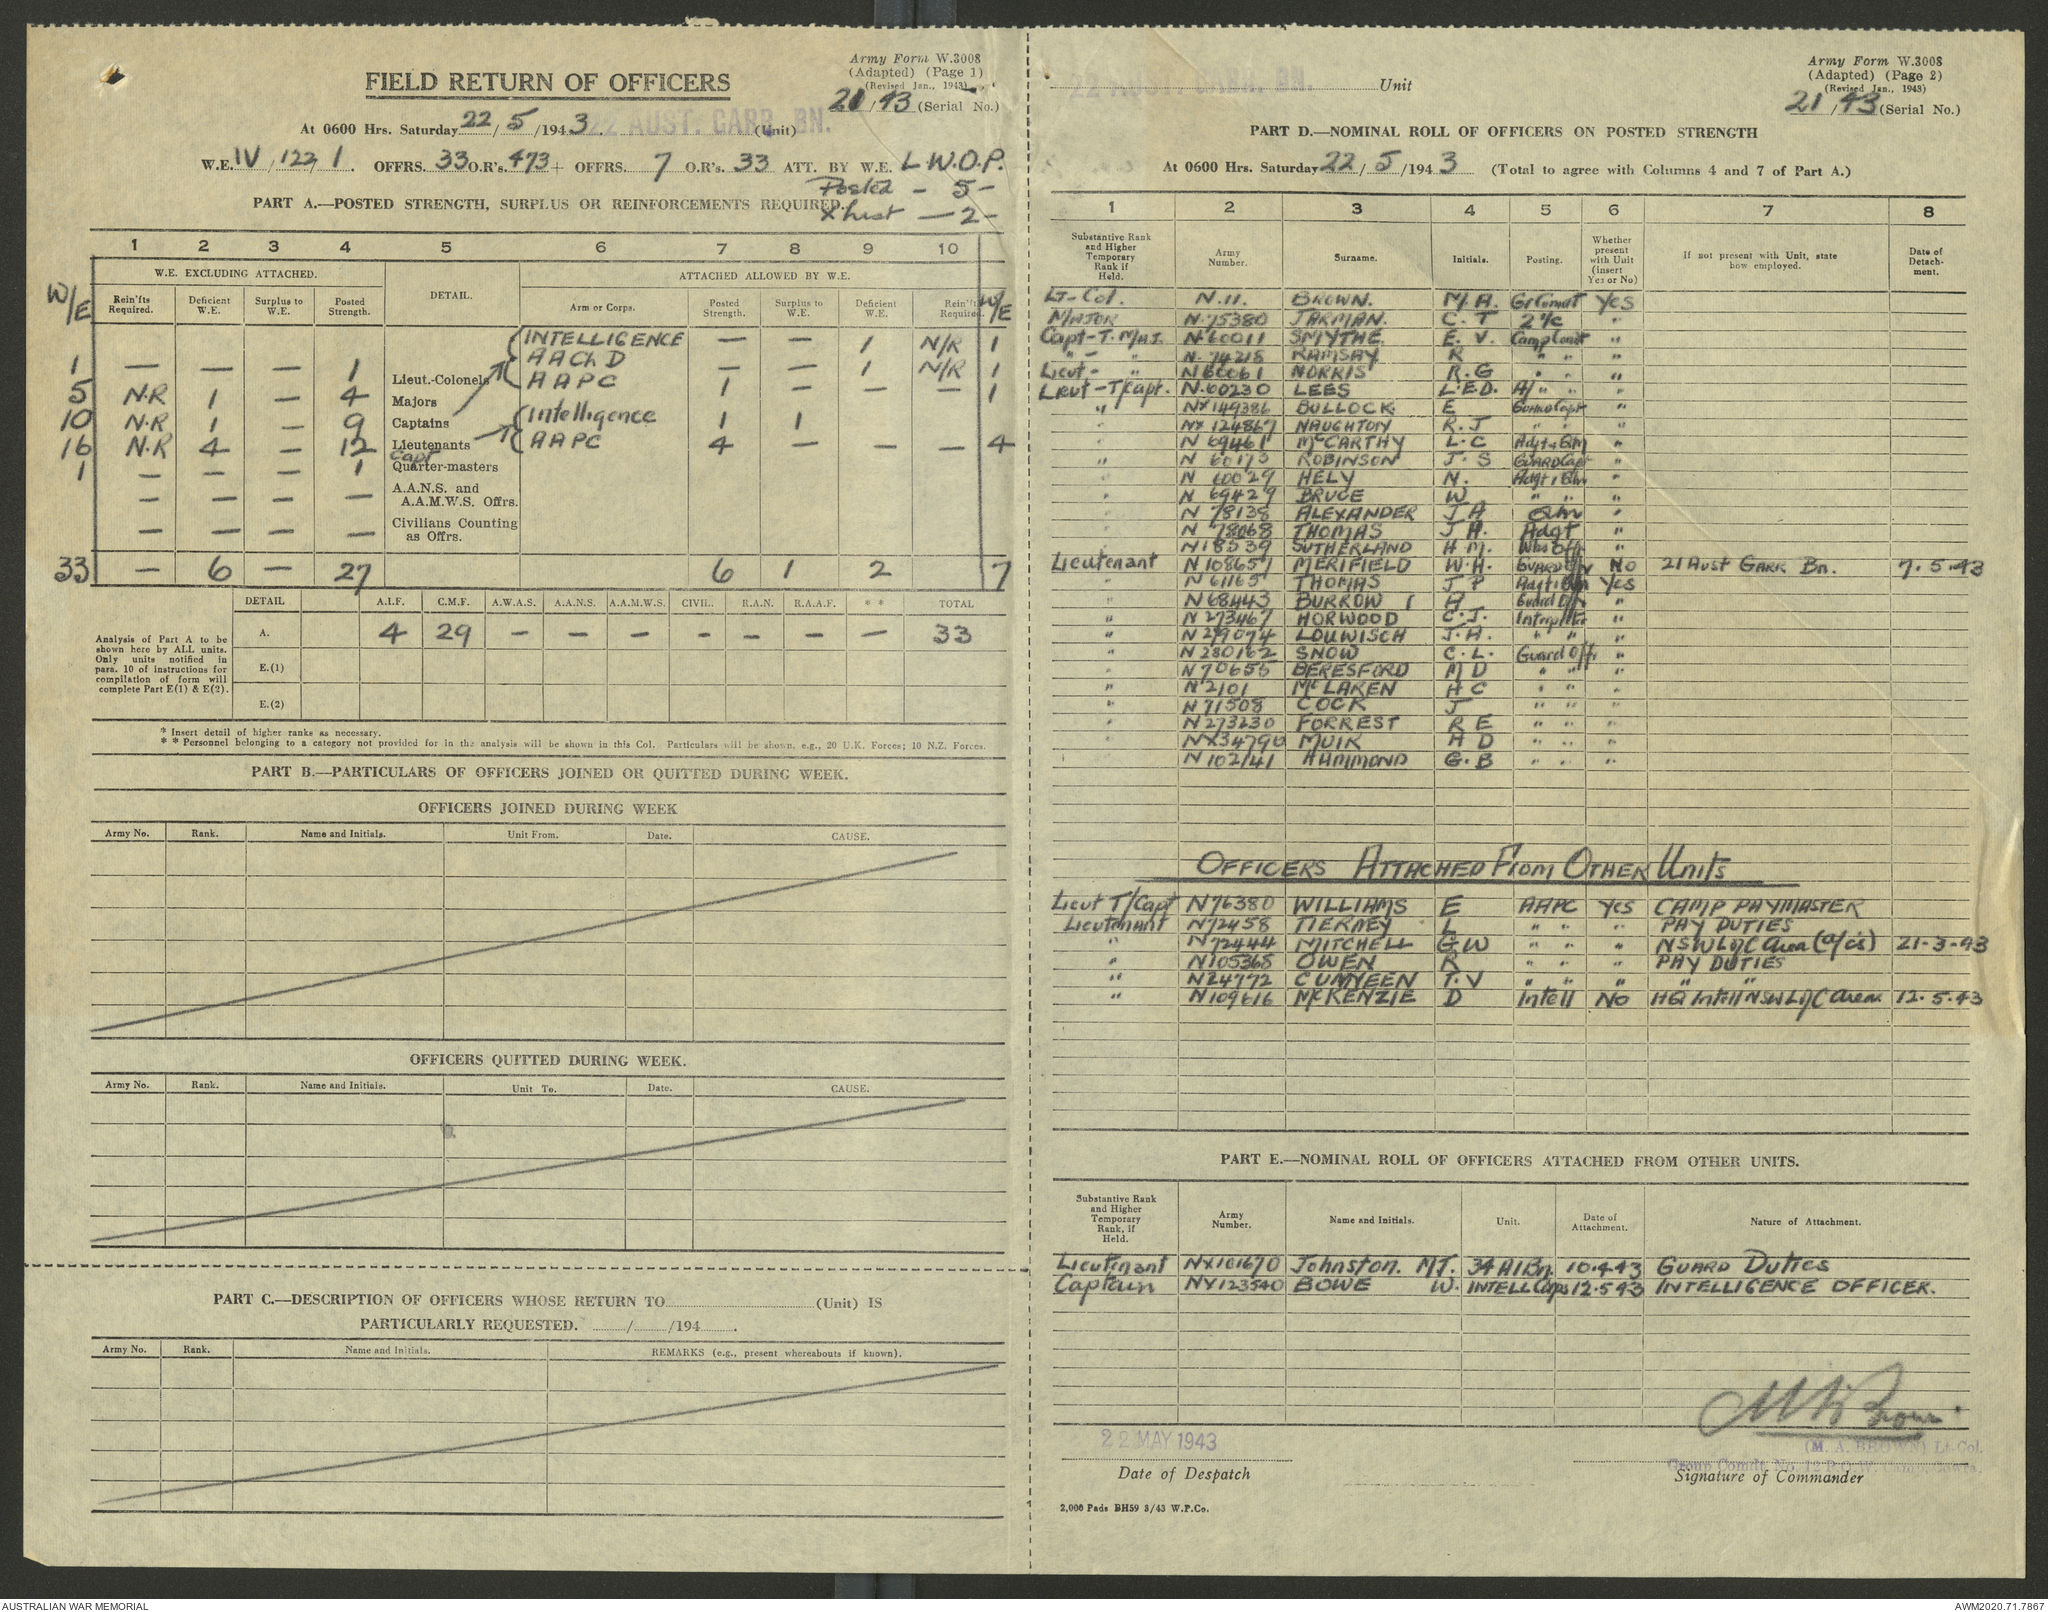 Army Form W.3008
(Adapted) (Page 1)
(Revised Jan., 1943)
FIELD RETURN OF OFFICERS
21/43 (Serial No.)
At 0600 Hrs. Saturday 22/5/1943 22 AUST. GARR. BN. (Unit)
W.E. IV/122/1. OFFRS. 33 O.R's. 473 + OFFRS. 7 O.R's. 33 ATT. BY W.E. L.W.O.P.
Posted - 5 -
X list - 2 -
PART A.—POSTED STRENGTH, SURPLUS OR REINFORCEMENTS REQUIRED.
1 2 3 4 5 6 7 8 9 10
W.E. EXCLUDING ATTACHED. DETAIL. ATTACHED ALLOWED BY W.E.
W/E Rein'fts Required. Deficient W.E. Surplus to W.E. Posted Strength. Arm or Corps. Posted Strength. Surplus to W.E. Deficient W.E. Rein'fts Required. W/E
INTELLIGENCE — — 1 N/R 1
1 — — — 1 Lieut.-Colonels AAChD — — 1 N/R 1
5 N.R 1 — 4 Majors AAPC 1 — — — 1
10 N.R 1 — 9 Captains Intelligence 1 1
16 N.R 4 — 12 Lieutenants AAPC 4 — — — 4
1 — — — 1 Capt Quarter-masters
— — — — A.A.N.S. and A.A.M.W.S. Offrs.
— — — — Civilians Counting as Offrs.
33 — 6 — 27 6 1 2 7
DETAIL A.I.F. C.M.F. A.W.A.S. A.A.N.S. A.A.M.W.S. CIVIL. R.A.N. R.A.A.F. * * TOTAL
Analysis of Part A to be shown here by ALL units. Only units notified in para. 10 of instructions for compilation of form will complete Part E(1) & E(2).
A. 4 29 — — — — — — — 33
E.(1)
E.(2)
* Insert detail of higher ranks as necessary.
* * Personnel belonging to a category not provided for in the analysis will be shown in this Col. Particulars will be shown, e.g., 20 U.K. Forces; 10 N.Z. Forces.
PART B.—PARTICULARS OF OFFICERS JOINED OR QUITTED DURING WEEK.
OFFICERS JOINED DURING WEEK
Army No. Rank. Name and Initials. Unit From. Date. CAUSE.
OFFICERS QUITTED DURING WEEK.
Army No. Rank. Name and Initials. Unit To. Date. CAUSE.
PART C.—DESCRIPTION OF OFFICERS WHOSE RETURN TO (Unit) IS
PARTICULARLY REQUESTED. / /194 .
Army No. Rank. Name and Initials. REMARKS (e.g., present whereabouts if known).
Army Form W.3008
(Adapted) (Page 2)
(Revised Jan., 1943)
22 AUST. GARR. BN. Unit
21/43 (Serial No.)
PART D.—NOMINAL ROLL OF OFFICERS ON POSTED STRENGTH
At 0600 Hrs. Saturday 22/5/1943 (Total to agree with Columns 4 and 7 of Part A.)
1 2 3 4 5 6 7 8
Substantive Rank and Higher Temporary Rank if Held. Army Number. Surname. Initials. Posting. Whether present with Unit (insert Yes or No) If not present with Unit, state how employed. Date of Detachment.
Lt-Col. N.11. BROWN. M.A. Gp Comdt Yes
MAJOR N.75380 JARMAN. C.T 2 i/c "
Capt-T.Maj. N.60011 SMYTHE E.V. Camp Comdt "
" - " N.74218 RAMSAY R " " "
Lieut- " N60061 NORRIS R.G " " "
Lieut-T/Capt. N.60230 LEES L.E.D. A/ " " "
" NX149386 BULLOCK E Guard Capt "
" NX124867 NAUGHTON R.J " " "
" N 69461 McCARTHY L.C Adjt & Qm "
" N 60173 ROBINSON J.S GUARD Capt "
" N 60029 HELY N. Adgt & Qm "
" N 69429 BRUCE W " " "
" N 78138 ALEXANDER J A Qm "
" N 78068 THOMAS J.H. Adgt "
" N18539 SUTHERLAND H M. "
Lieutenant N108657 MERIFIELD W.A. GUARD Off No 21 Aust GARR Bn. 7.5.43
" N61165 THOMAS J P Adjt & Qm Yes
" N68443 BURROW H Guard Off "
" N273467 HORWOOD C.J. Interpreter "
" N279074 LOUWISCH J.A. " " "
" N280162 SNOW C.L. Guard Off "
" N70655 BERESFORD M D " " "
" N2101 McLAREN H C " " "
" N71508 COCK J " " "
" N273230 FORREST R E " " "
" NX34790 MUIR A D " " "
N102141 HAMMOND G.B " " "
OFFICERS ATTACHED FROM OTHER UNITS
Lieut T/Capt N76380 WILLIAMS E AAPC Yes CAMP PAYMASTER
Lieutenant N72458 TIERNEY L " " " PAY DUTIES
" N72444 MITCHELL G W " " " NSW L of C Area (a/cs) 21-3-43
" N105368 OWEN R " " " PAY DUTIES
" N24772 CUNYEEN T.V " " " " "
" N109616 McKENZIE D Intell No HQ Intell NSW L of C Area. 12.5.43
PART E.—NOMINAL ROLL OF OFFICERS ATTACHED FROM OTHER UNITS.
Substantive Rank and Higher Temporary Rank, if Held. Army Number. Name and Initials. Unit. Date of Attachment. Nature of Attachment.
Lieutenant NX101670 Johnston. M J. 34 A I Bn. 10.4.43 GUARD DUTIES
Captain NX123540 BOWE W. INTELL Corps 12.5.43 INTELLIGENCE OFFICER.
22 MAY 1943
Date of Despatch
M A Brown
(M. A. BROWN) Lt-Col.
Group Comdt. No. 12 P.O.W. Camp, Cowra.
Signature of Commander
2,000 Pads BH59 3/43 W.P.Co.
AUSTRALIAN WAR MEMORIAL
AWM2020.71.7867